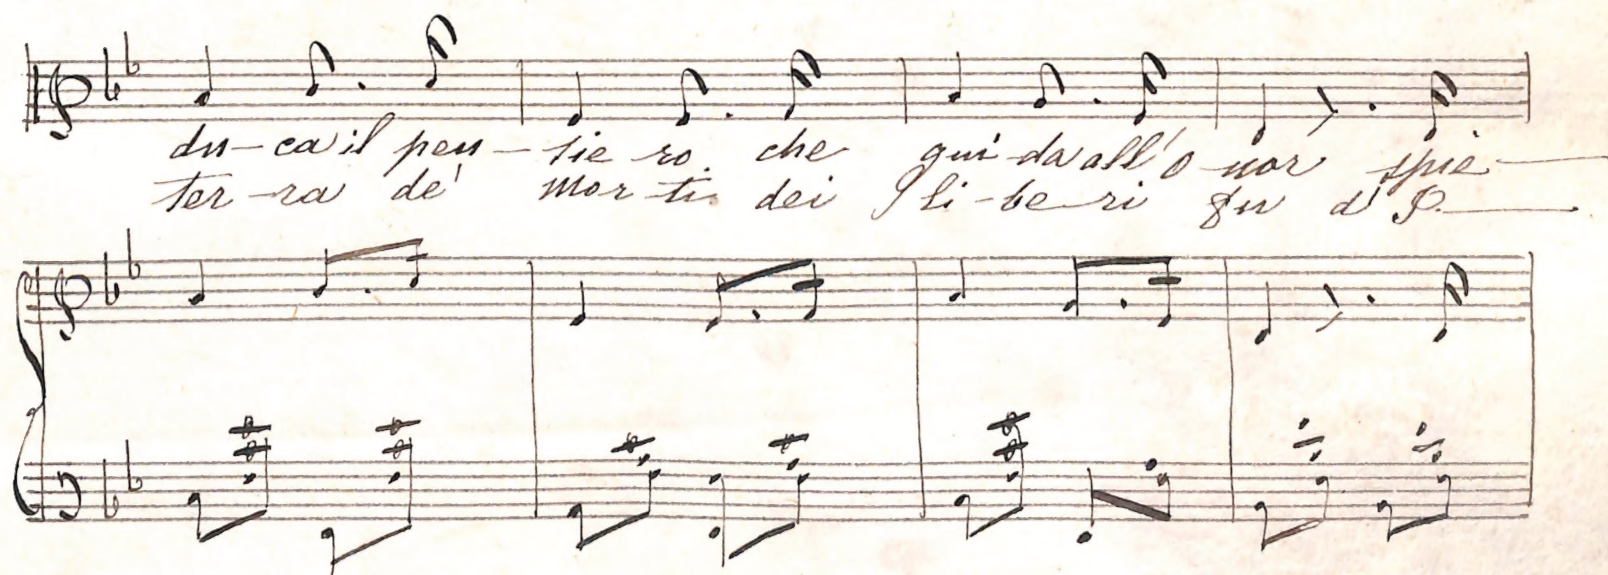 du-ca il pen-sie-ro che gui-da all'o-nor spie-
ter-ra de' mor-ti dei li-be-ri fu d'